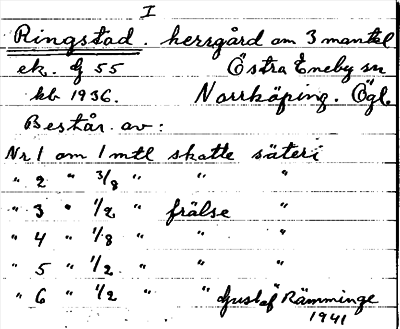 I
Ringstad. herrgård om 3 mantal
ek. G 55 Östra Eneby sn
kb 1936. Norrköping. Ögl.
Består av:
Nr 1 om 1 mtl skatte säteri
" 2 " 3/8 " " "
" 3 " 1/2 " frälse "
" 4 " 1/8 " " "
" 5 " 1/2 " " "
" 6 " 1/2 " " "
Gustaf Rämminge
1941